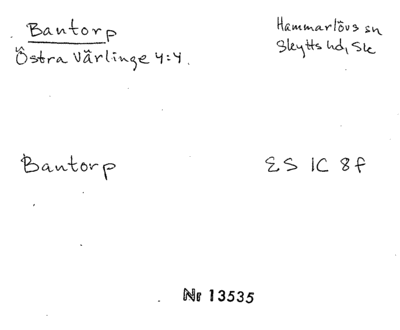 Bantorp
Hammarlövs sn
Östra Värlinge 4:4.
Skytts hd, Sk
Bantorp
ES 1C 8f
Nr 13535